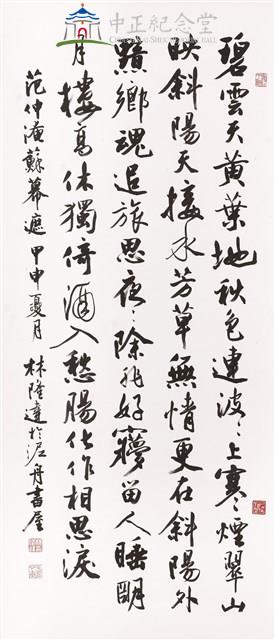 中正紀念堂
CHIANG KAI-SHEK MEMORIAL HALL
碧雲天黃葉地秋色連波〻上寒〻煙翠山
映斜陽天接水芳草無情更在斜陽外
黯鄉魂追旅思夜〻除非好夢留人睡明
月樓高休獨倚酒入愁腸化作相思淚
范仲淹蘇幕遮 甲申夏月 林隆達於舟書屋